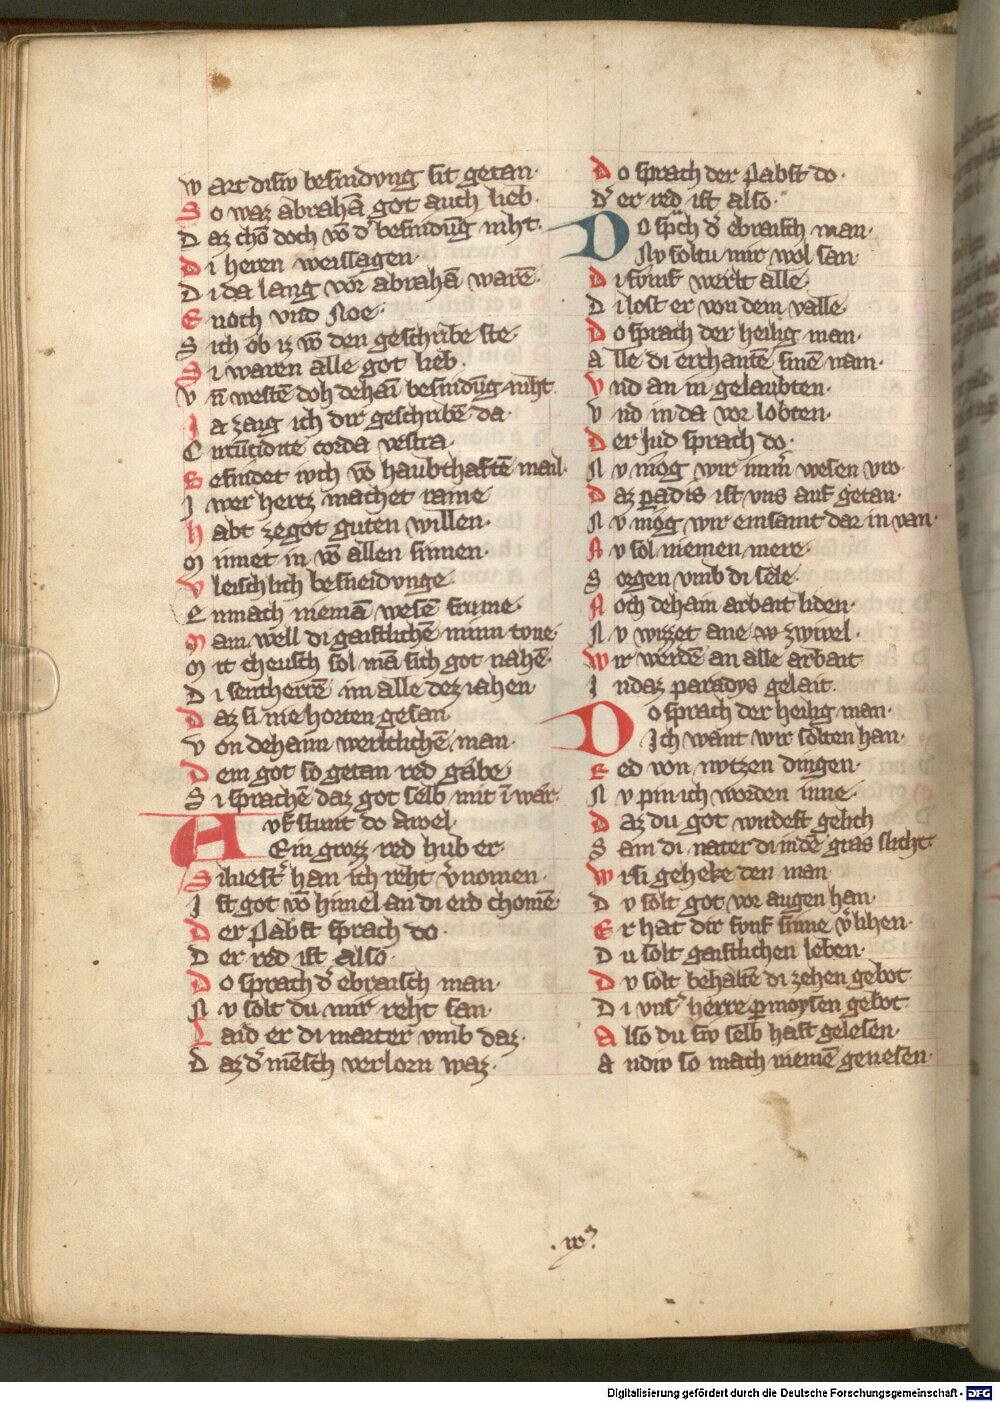 W art disiv besnidvng sit getan·
S o waz abrahā got auch lieb·
D az chō doch vō d' besnidūg niht·
D i heren weissagen·
D i da lang vor abrahā warē·
E noch vnd Noe·
S ich ob iz vō den geschribē ste·
S i waren alle got lieb·
V ñ westē doh dehaī besnidūg niht·
I a zaig ich dir geschribē da·
C ircūcidite corda vestra·
B esnidet iwch vō haubthaftē mail·
I wer hertz machet raine
H abt ze got guten willen·
M innet in vō allen sinnen·
V leischlich besneidvnge·
E nmach niemā wesē frume·
M an well di gaistlichē minn tvne·
M it cheusch sol mā sich got nahē·
D i sentherrē im alle dez iahen
D az si nie horten gesan
V on dehaim werltlichē man·
D em got so getan red gäbe·
S i sprachē daz got selb mit ī wär·
A vf stunt do Awel·
Ein grozz red hub er·
S iluest' han ich reht v'nomen·
I st got vō himel an di erd chomē·
D er Pabst sprach do·
D er red ist also·
D o sprach d' ebraisch man·
N v solt du mir reht san·
L aid er di marter vmb daz·
D az d' mēsch verlorn waz·
D o sprach der Pabst do·
D' er red ist also·
D o sp'ch d' ebraisch man·
Nv soltu mir wol san
D i fvmf werlt alle·
D i lost er von dem valle·
D o sprach der heilig man·
A lle di erchantē sinē nam·
V nd an in gelaubten·
V nd in da vor lobten·
D er Jud sprach do·
N v mög wir im̄ wesen vro·
D az padis ist vns auf getan·
N v mög wir ensamt dar in van·
N v sol niemen mere·
S orgen vmb di sele·
N och dehain arbait liden·
N v wizzet ane zwivel·
W ir werdē an alle arbait
I n daz paradys gelait·
D o sprach der heilig man·
Ich want wir solten han·
R ed von nvtzen dingen·
N v pin ich worden inne·
D az du got wirdest gelich
S am di nater di in dē gras slicht·
W i si geheke den man
D v solt got vor augen han·
E r hat dir fvnf sinne v'lihen·
D u solt gaistlichen leben·
D v solt behaltē di zehen gebot
D i vns' herre p moysen gebot·
A lso du siv selb hast gelesen·
A n diw so mach niemē genesen·
Digitalisierung gefördert durch die Deutsche Forschungsgemeinschaft - DFG